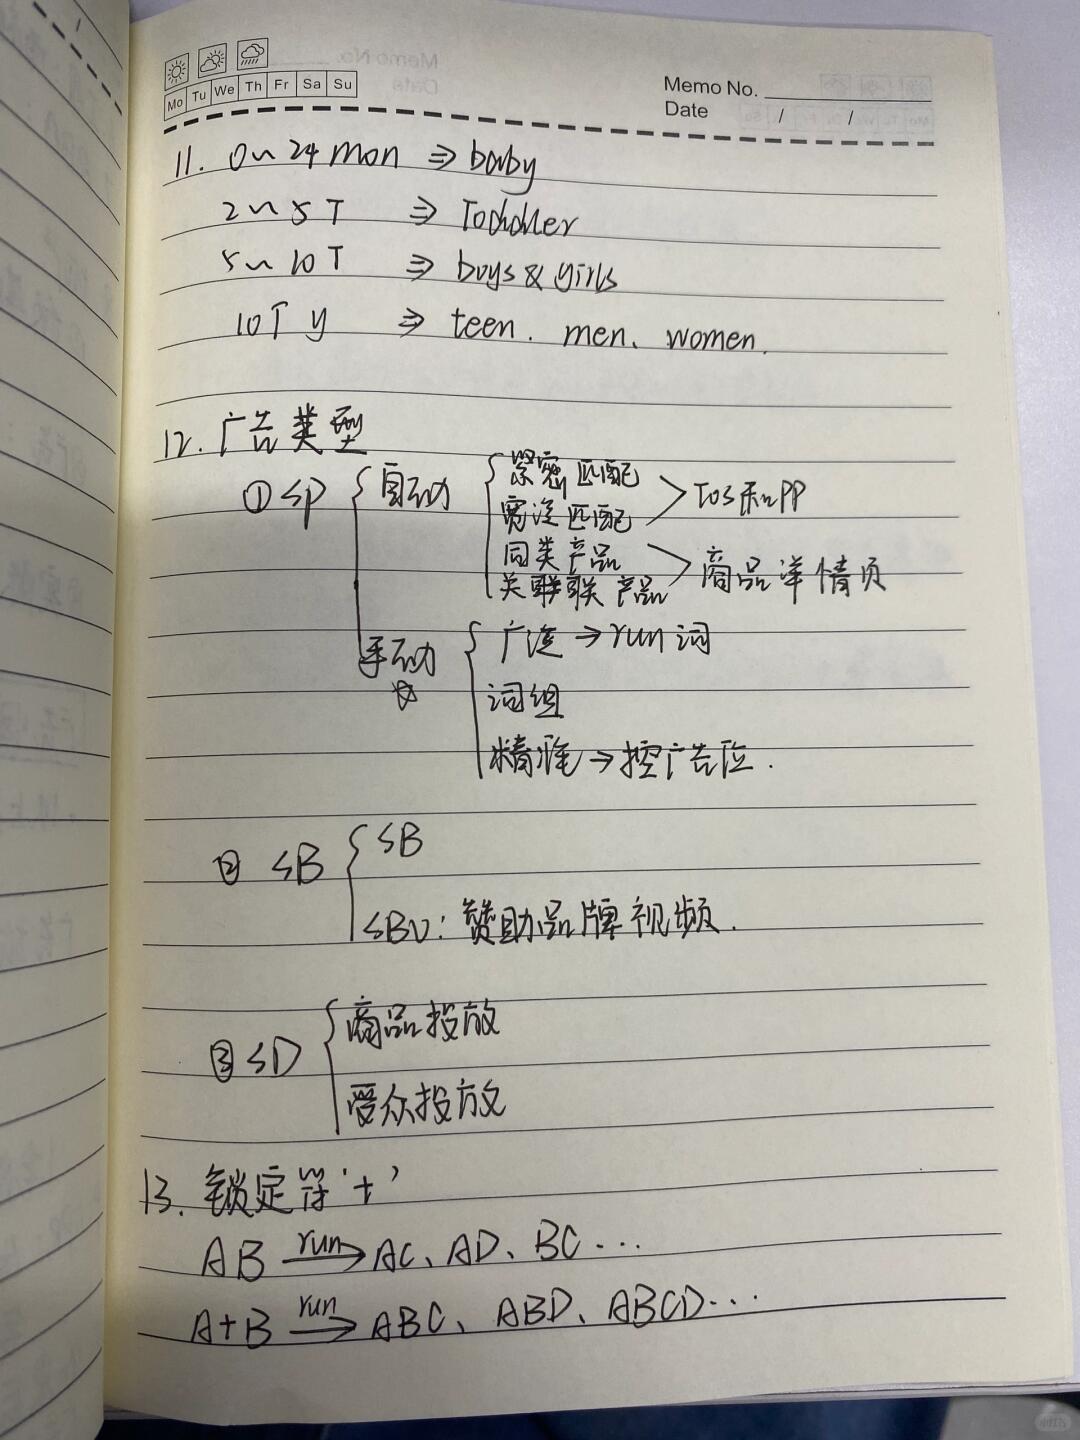 Mo Tu We Th Fr Sa Su
Memo No.
Date / /
11. 0~24 mon ⇒ baby
2~5 T ⇒ Toddler
5~10 T ⇒ boys & girls
10T y ⇒ teen. men、women.
12. 广告类型
① SP
自动
紧密匹配
宽泛匹配
TOS和PP
同类产品
关联联产品
商品详情页
手动
广泛 → run词
词组
精准 → 控广告位.
② SB
SB
SBV: 赞助品牌视频.
③ SD
商品投放
受众投放
13. 锁定符'+'
AB run→ AC、AD、BC...
A+B run→ ABC、ABD、ABCD...